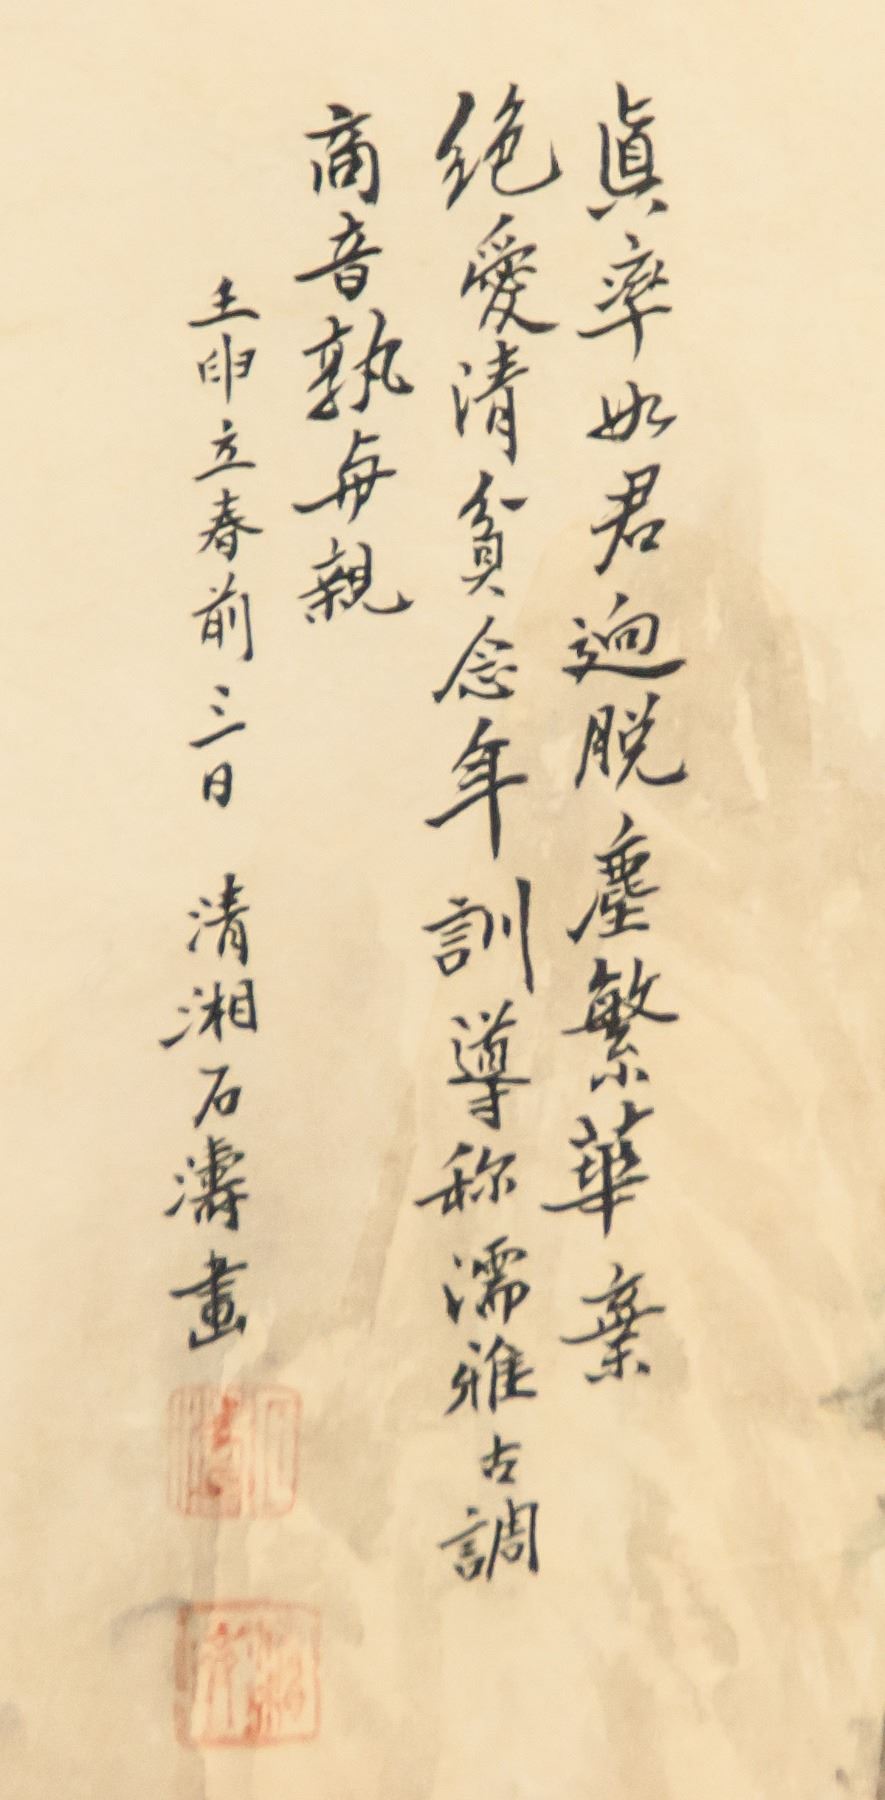 眞率如君迥脱塵繁華棄
絶愛清貧念年訓導称濡雅古調
商音孰与親
壬申立春前三日 清湘石濤畫